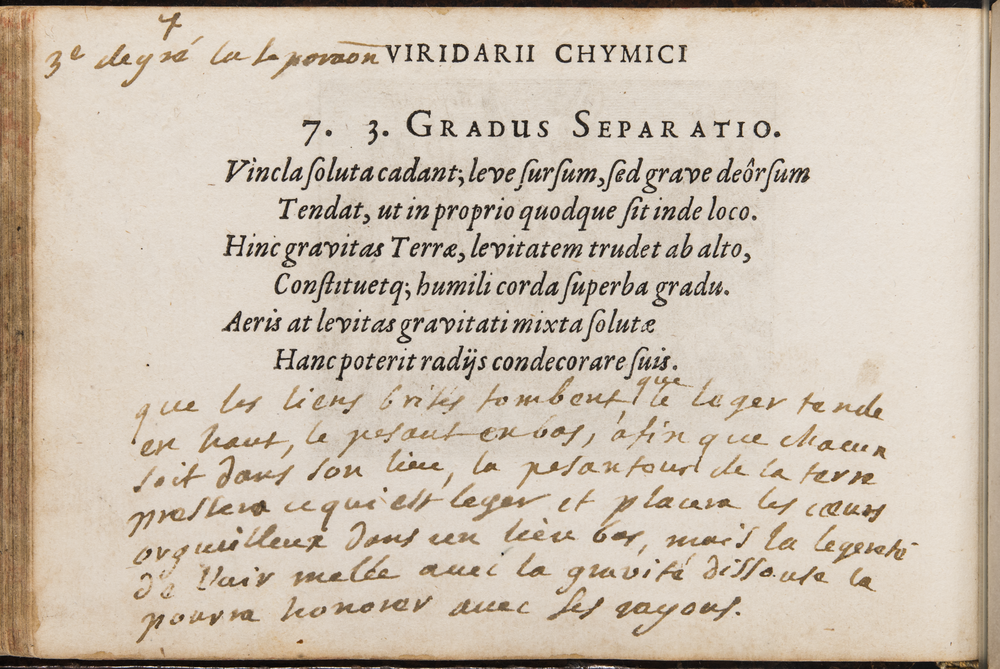 7
3e degré la separaon VIRIDARII CHYMICI
7. 3. GRADUS SEPARATIO.
Vincla ſoluta cadant; leve ſurſum, ſed grave deôrſum
Tendat, ut in proprio quodque ſit inde loco.
Hinc gravitas Terræ, levitatem trudet ab alto,
Conſtituetq; humili corda ſuperba gradu.
Aeris at levitas gravitati mixta ſolutæ
Hanc poterit radijs condecorare ſuis.
que les liens brisés tombent, que le leger tende
en haut, le pesant en bas, afin que chacun
soit dans son lieu, la pesanteur de la terre
pressera ce qui est leger et placera les cœurs
orgueilleux dans un lieu bas, mais la legereté
de l'air melée avec la gravité dissoute la
pourra honorer avec ses rayons.